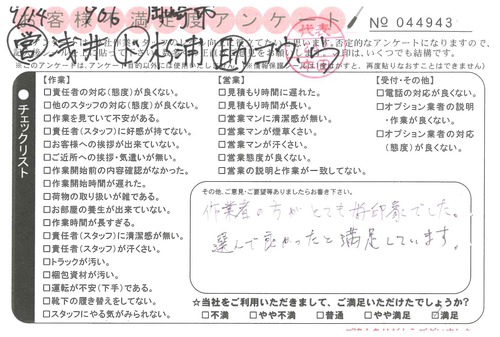 お客様満足度アンケート
№ 044943
●チェックリスト
【作業】
□責任者の対応(態度)が良くない。
□他のスタッフの対応(態度)が良くない。
□作業を見ていて不安がある。
□責任者(スタッフ)に好感が持てない。
□お客様への挨拶が出来ていない。
□ご近所への挨拶・気遣いが無い。
□作業開始前の内容確認がなかった。
□作業開始時間が遅れた。
□荷物の取り扱いが雑である。
□お部屋の養生が出来ていない。
□作業時間が長すぎる。
□責任者(スタッフ)に清潔感が無い。
□責任者(スタッフ)が汗くさい。
□トラックが汚い。
□梱包資材が汚い。
□運転が不安(下手)である。
□靴下の履き替えをしてない。
□スタッフにやる気がみられない。
【営業】
□見積もり時間に遅れた。
□見積もり時間が長い。
□営業マンに清潔感が無い。
□営業マンが煙草くさい。
□営業マンが汗くさい。
□営業態度が良くない。
□営業の説明と作業が一致してない。
【受付・その他】
□電話の対応が良くない。
□オプション業者の説明
・作業が良くない。
□オプション業者の対応
(態度)が良くない。
その他、ご意見・ご要望等ありましたらお書き下さい。
作業者の方がとても好印象でした。
選んで良かったと満足しています。
☆当社をご利用いただきまして、ご満足いただけたでしょうか?
□不満 □やや不満 □普通 □やや満足 ☑満足